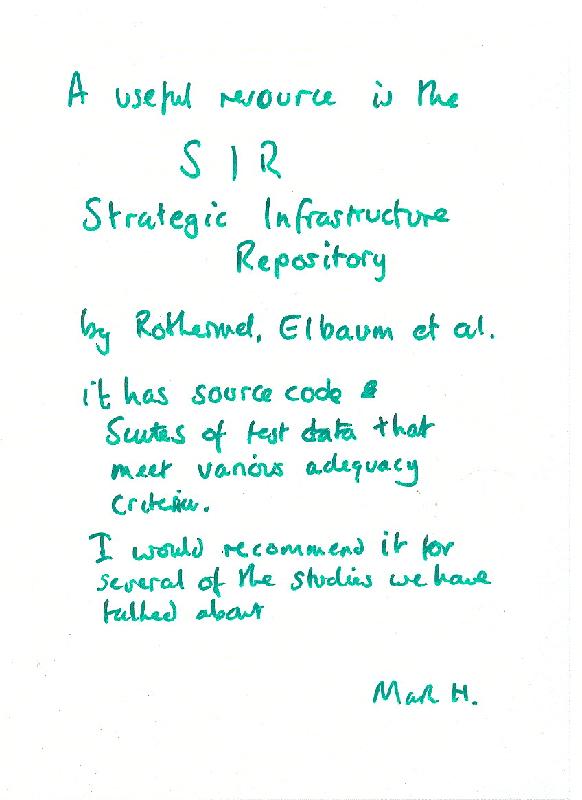 A useful resource is the
SIR
Strategic Infrastructure
Repository
by Rothermel, Elbaum et al.
it has source code &
Suites of test data that
meet various adequacy
Criteria.
I would recommend it for
several of the studies we have
talked about
Mark H.